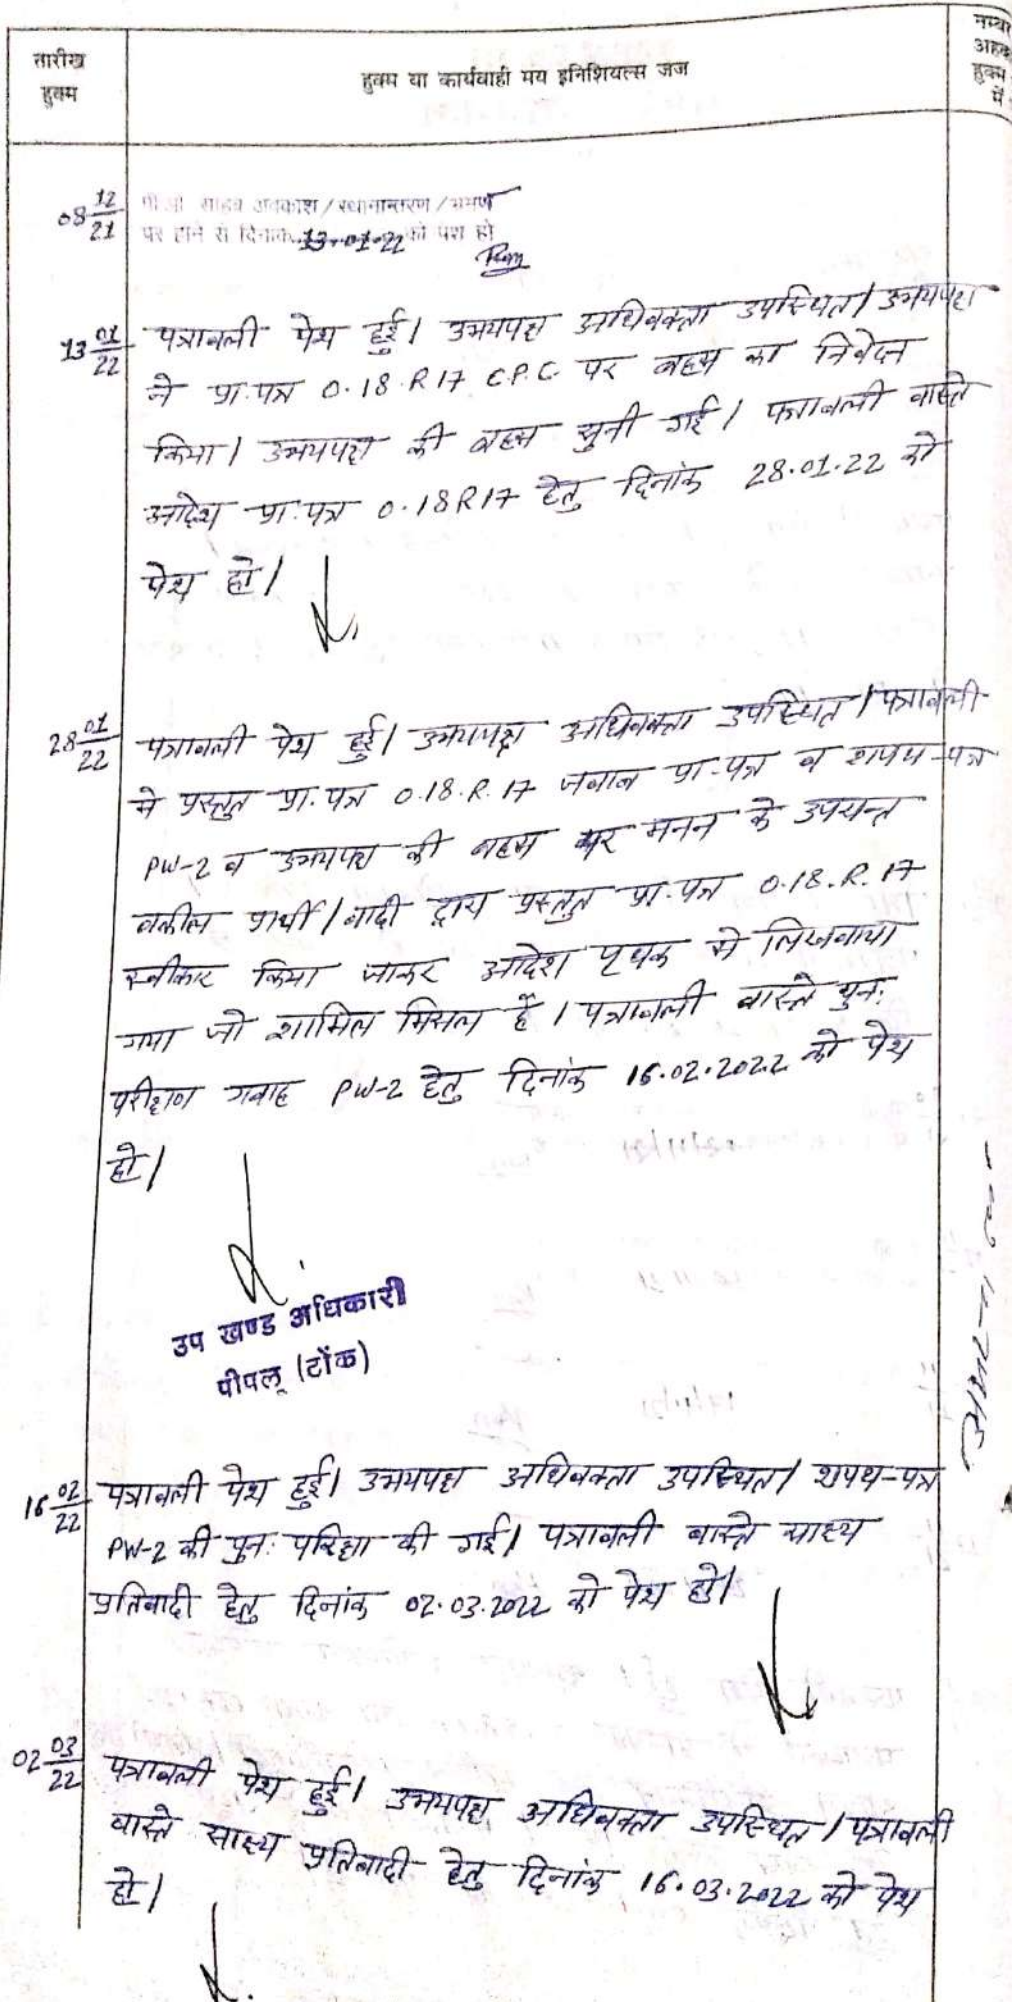 तारीख
हुक्म
हुक्म या कार्यवाही मय इनिशियल्स जज
हुक्म
में
08 12/21
साहब अवकाश/स्थानान्तरण/भ्रमण
पर होने से दिनांक 13-01-22 को पेश हो
13 01/22
पत्रावली पेश हुई। उभयपक्ष अधिवक्ता उपस्थित। उभयपक्ष
ने प्रा.पत्र 0.18.R17 C.P.C. पर बहस का निवेदन
किया। उभयपक्ष की बहस सुनी गई। पत्रावली वास्ते
आदेश प्रा.पत्र 0.18R17 हेतु दिनांक 28.01.22 को
पेश हो।
28 01/22
पत्रावली पेश हुई। उभयपक्ष अधिवक्ता उपस्थित। पत्रावली
मे प्रस्तुत प्रा.पत्र 0.18.R.17 जवाब प्रा-पत्र व शपथ-पत्र
PW-2 व उभयपक्ष की बहस पर मनन के उपरान्त
वकील प्रार्थी/वादी द्वारा प्रस्तुत प्रा.पत्र 0.18.R.17
स्वीकार किया जाकर आदेश पृथक से लिखवाया
गया जो शामिल मिसल है। पत्रावली वास्ते पुन:
परीक्षण गवाह PW-2 हेतु दिनांक 16.02.2022 को पेश
हो।
उप खण्ड अधिकारी
पीपलू (टोंक)
16 02/22
पत्रावली पेश हुई। उभयपक्ष अधिवक्ता उपस्थित। शपथ-पत्र
PW-2 की पुन: परिक्षा की गई। पत्रावली वास्ते साक्ष्य
प्रतिवादी हेतु दिनांक 02.03.2022 को पेश हो।
02 03/22
पत्रावली पेश हुई। उभयपक्ष अधिवक्ता उपस्थित। पत्रावली
वास्ते साक्ष्य प्रतिवादी हेतु दिनांक 16.03.2022 को पेश
हो।